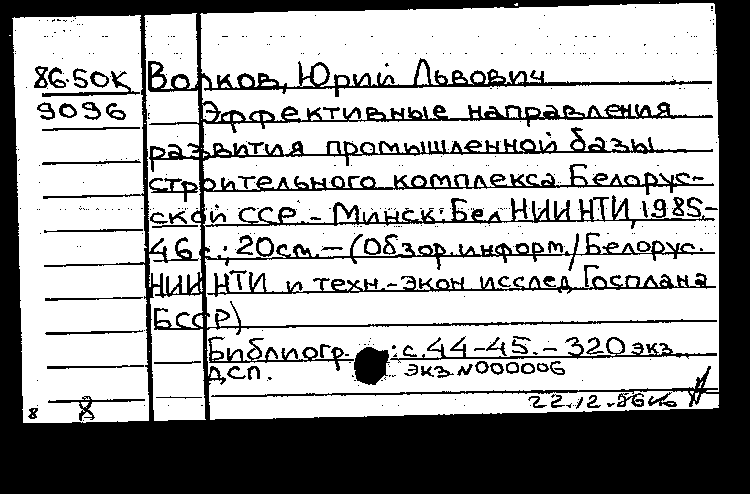 86-50К Волков, Юрий Львович
9096 Эффективные направления
развития промышленной базы
строительного комплекса Белорус-
ской ССР. - Минск: Бел НИИ НТИ, 1985.-
46 с.; 20 см. - (Обзор. информ. / Белорус.
НИИ НТИ и техн.-экон исслед Госплана
БССР)
Библиогр. : с. 44-45. - 320 экз.
ДСП. экз. N000006
22.12.86
8 8